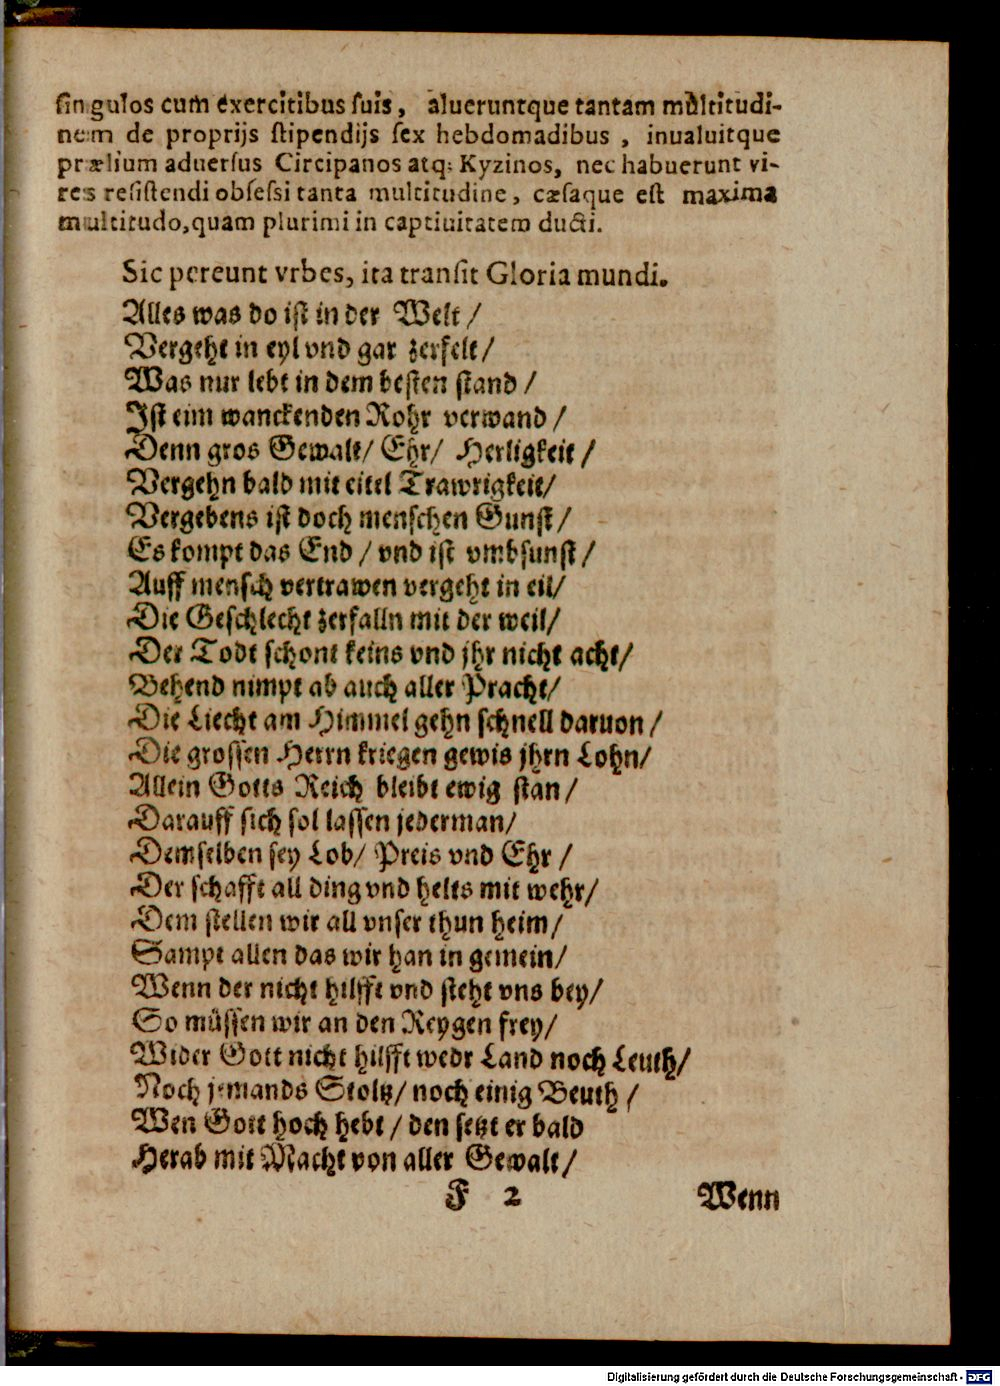 singulos cum exercitibus suis, alueruntque tantam multitudi-
nem de proprijs stipendijs sex hebdomadibus, inualuitque
prælium aduersus Circipanos atq; Kyzinos, nec habuerunt vi-
res resistendi obsessi tanta multitudine, cæsaque est maxima
multitudo, quam plurimi in captiuitatem ducti.
Sic pereunt vrbes, ita transit Gloria mundi.
Alles was do ist in der Welt /
Vergeht in eyl vnd gar zerfelt /
Was nur lebt in dem besten stand /
Ist eim wanckenden Rohr verwand /
Denn gros Gewalt / Ehr / Herligkeit /
Vergehn bald mit eitel Trawrigkeit /
Vergebens ist doch menschen Gunst /
Es kompt das End / vnd ist vmbsunst /
Auff mensch vertrawen vergeht in eil /
Die Geschlecht zerfalln mit der weil /
Der Todt schont keins vnd jhr nicht acht /
Behend nimpt ab auch aller Pracht /
Die Liecht am Himmel gehn schnell daruon /
Die grossen Herrn kriegen gewis jhrn Lohn /
Allein Gotts Reich bleibt ewig stan /
Darauff sich sol lassen jederman /
Demselben sey Lob / Preis vnd Ehr /
Der schafft all ding vnd helts mit wehr /
Dem stellen wir all vnser thun heim /
Sampt allen das wir han in gemein /
Wenn der nicht hilfft vnd steht vns bey /
So müssen wir an den Reygen frey /
Wider Gott nicht hilfft wedr Land noch Leuth /
Noch jemands Stoltz / noch einig Beuth /
Wen Gott hoch hebt / den setzt er bald
Herab mit Macht von aller Gewalt /
F 2 Wenn
Digitalisierung gefördert durch die Deutsche Forschungsgemeinschaft - DFG